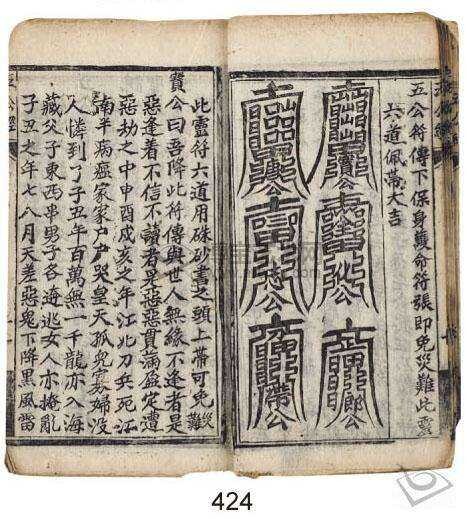 五公符傳下保身護命符張即免災難此靈
六道佩帶大吉
此靈符六道用硃砂書之頭上帶可免災難
寳公曰吾降此符傳與世人無緣不逢者是
惡逢着不信不讀者是惡惡貫滿盈定遭
惡劫之中申酉戌亥之年江北刀兵死江
南羊病瘟家家户户哭皇天孤兒寡婦没
人憐到了子丑年百萬無一千龍亦入海
藏父子東西串男子各逃女人亦掩亂
子丑之年七八月天差惡鬼下降黑風雷
五公經
424